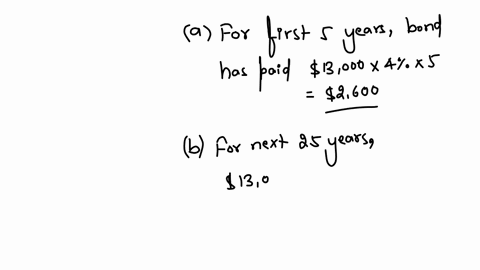 (a) For first 5 years, bond
has paid $13,000 x 4% x 5
= $2,600
(b) For next 25 years,
$13,0